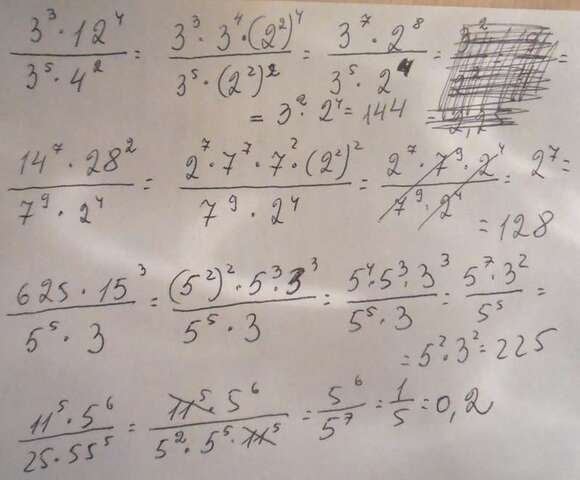 3³ · 12⁴ / 3⁵ · 4² = 3³ · 3⁴ · (2²)⁴ / 3⁵ · (2²)² = 3⁷ · 2⁸ / 3⁵ · 2⁴ = =
= 3² · 2⁴ = 144
14⁷ · 28² / 7⁹ · 2⁴ = 2⁷ · 7⁷ · 7² · (2²)² / 7⁹ · 2⁴ = 2⁷ · 7⁹ · 2⁴ / 7⁹ · 2⁴ = 2⁷ =
= 128
625 · 15³ / 5⁵ · 3 = (5²)² · 5³ · 3³ / 5⁵ · 3 = 5⁴ · 5³ · 3³ / 5⁵ · 3 = 5⁷ · 3² / 5⁵ =
= 5² · 3² = 225
11⁵ · 5⁶ / 25 · 55⁵ = 11⁵ · 5⁶ / 5² · 5⁵ · 11⁵ = 5⁶ / 5⁷ = 1 / 5 = 0,2